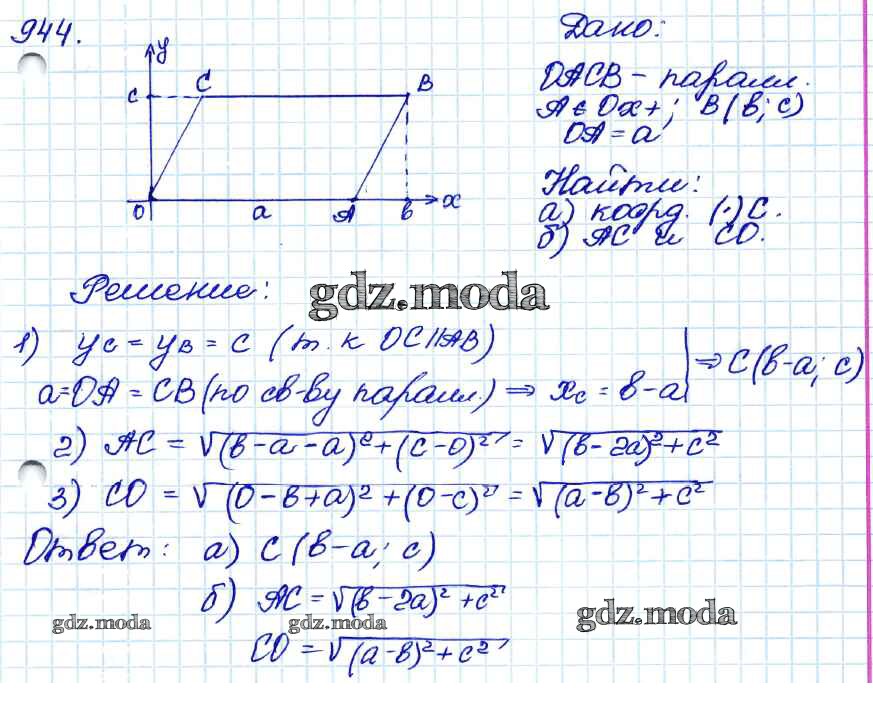 944.
y
c
C
B
O
a
A
в
x
Дано:
OACB – паралл.
A ∈ Ox+; B(в; c)
OA = a
Найти:
а) коорд. (·) C.
б) AC и CO.
Решение:
gdz.moda
1) yc = yв = c (т. к OC||AB)
a=OA = CB (по св-ву паралл.) ⇒ xc = в-a | ⇒ C(в-a; c)
2) AC = √(в-a-a)²+(c-0)² = √(в-2a)²+c²
3) CO = √(0-в+a)²+(0-c)² = √(a-в)²+c²
Ответ: а) C(в-a; c)
б) AC = √(в-2a)²+c²
gdz.moda
gdz.moda
gdz.moda
CO = √(a-в)²+c²